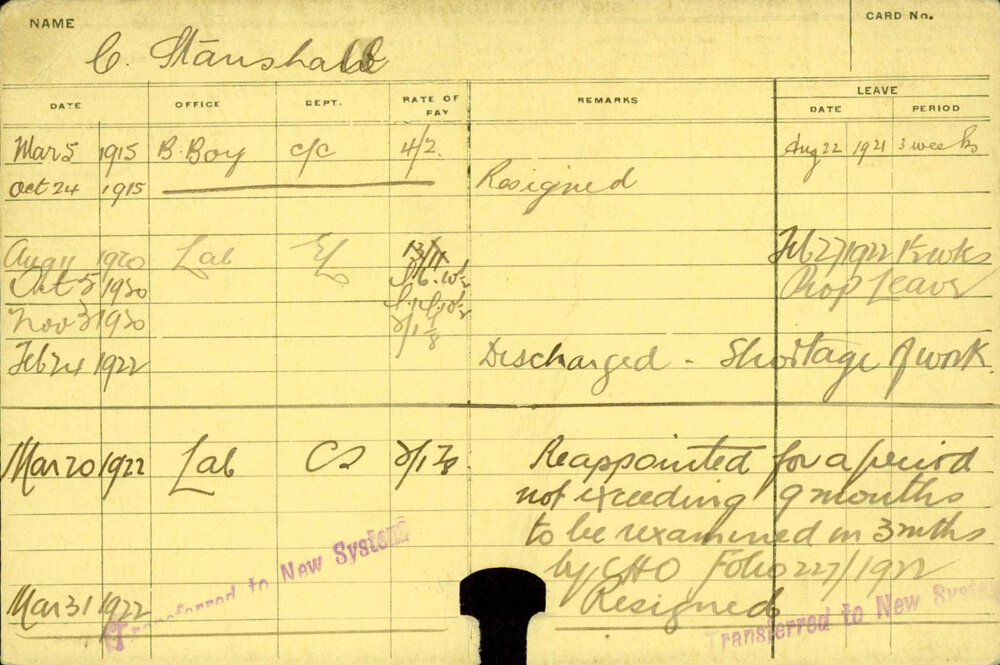 NAME
CARD No.
C. Stanshall
DATE OFFICE DEPT. RATE OF PAY REMARKS LEAVE
DATE PERIOD
Mar 5 1915 B. Boy c/c 4/2 Aug 22 1921 3 weeks
Oct 24 1915 Resigned
Aug 11 1920 Lab Feb 27 1922 wks
Oct 5 1920 Prop Leave
Nov 3 1920
Feb 24 1922 Discharged - Shortage of work.
Mar 20 1922 Lab CS Reappointed for a period
not exceeding 9 months
to be rexamined in 3 mths
Transferred to New System
by CHO Folio 227/1922
Mar 31 1922 Resigned
Transferred to New System